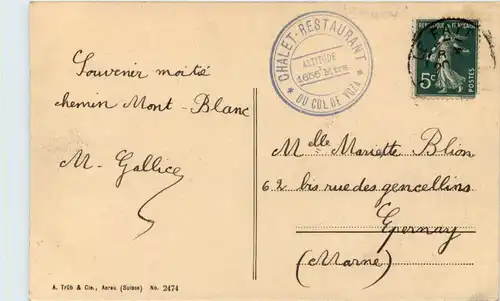 CHALET-RESTAURANT
ALTITUDE
1655 Mtres
DU COL DE VOZA
REPUBLIQUE FRANÇAISE
5c
POSTES
Souvenir moitié
chemin Mont-Blanc
M. Gallice
Melle Mariette Blion
62 bis rue des gencellins
Epernay
(Marne)
A. Trüb & Cie., Aarau (Suisse) No. 2474